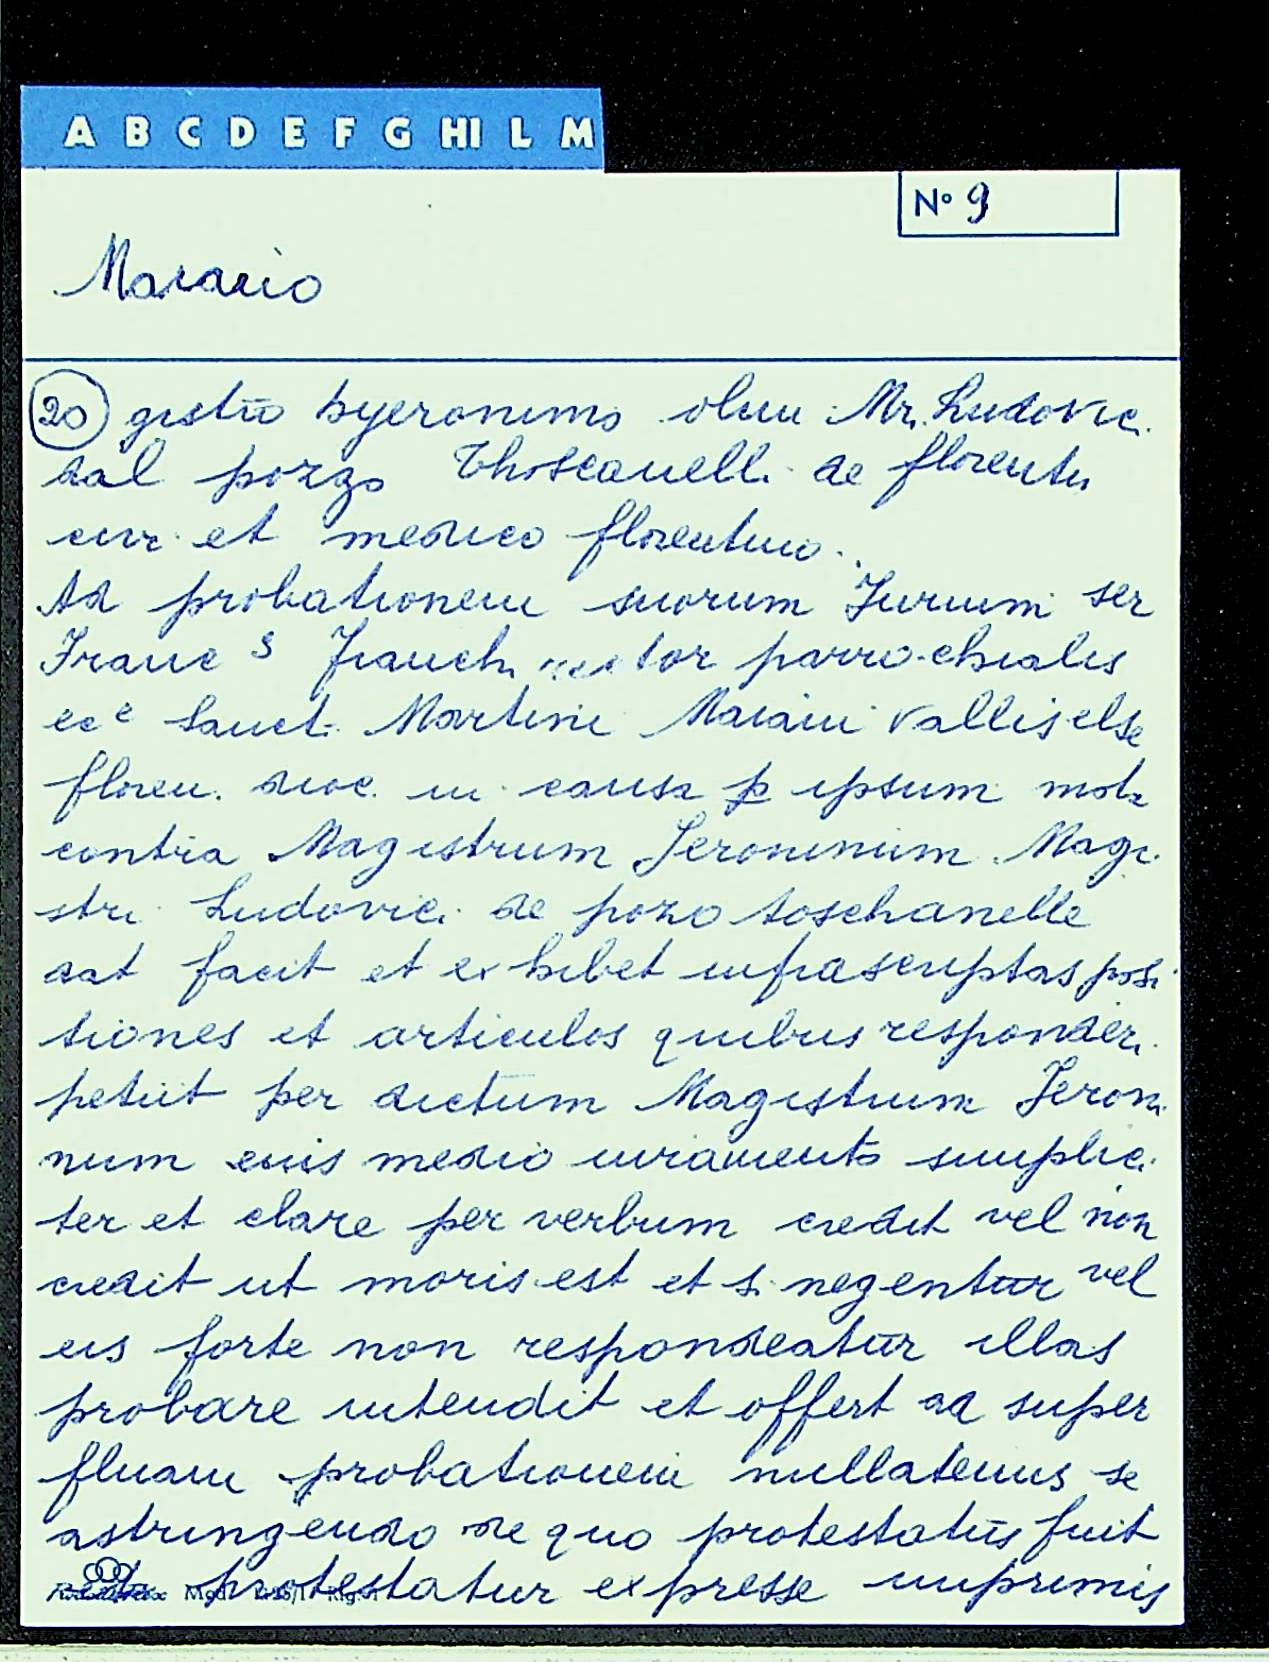 A B C D E F G HI L M
Nº 9
Marario
20 gistro hyeronimo olim Mr. Ludovic.
dal pozzo Thoscanelli de florentia
civi et medico florentino.
Ad probationem suorum Jurium ser
Franc s Franchi rector parrochialis
ecc Sanct. Martini Maraini vallis else
floren. dioc. in causa p ipsum mota
contra Magistrum Jeronimum Magi
stri Ludovici de pozo toschanelle
dat facit et exhibet infrascriptas posi
tiones et articulos quibus responderi
petiit per dictum Magistrum Jeroni
num eius medio iuramento simplici
ter et clare per verbum credit vel non
credit ut moris est et si negentur vel
eis forte non respondeatur illas
probare intendit et offert ad super
fluam probationem nullatenus se
astringendo de quo protestatus fuit
et protestatur expresse inprimis